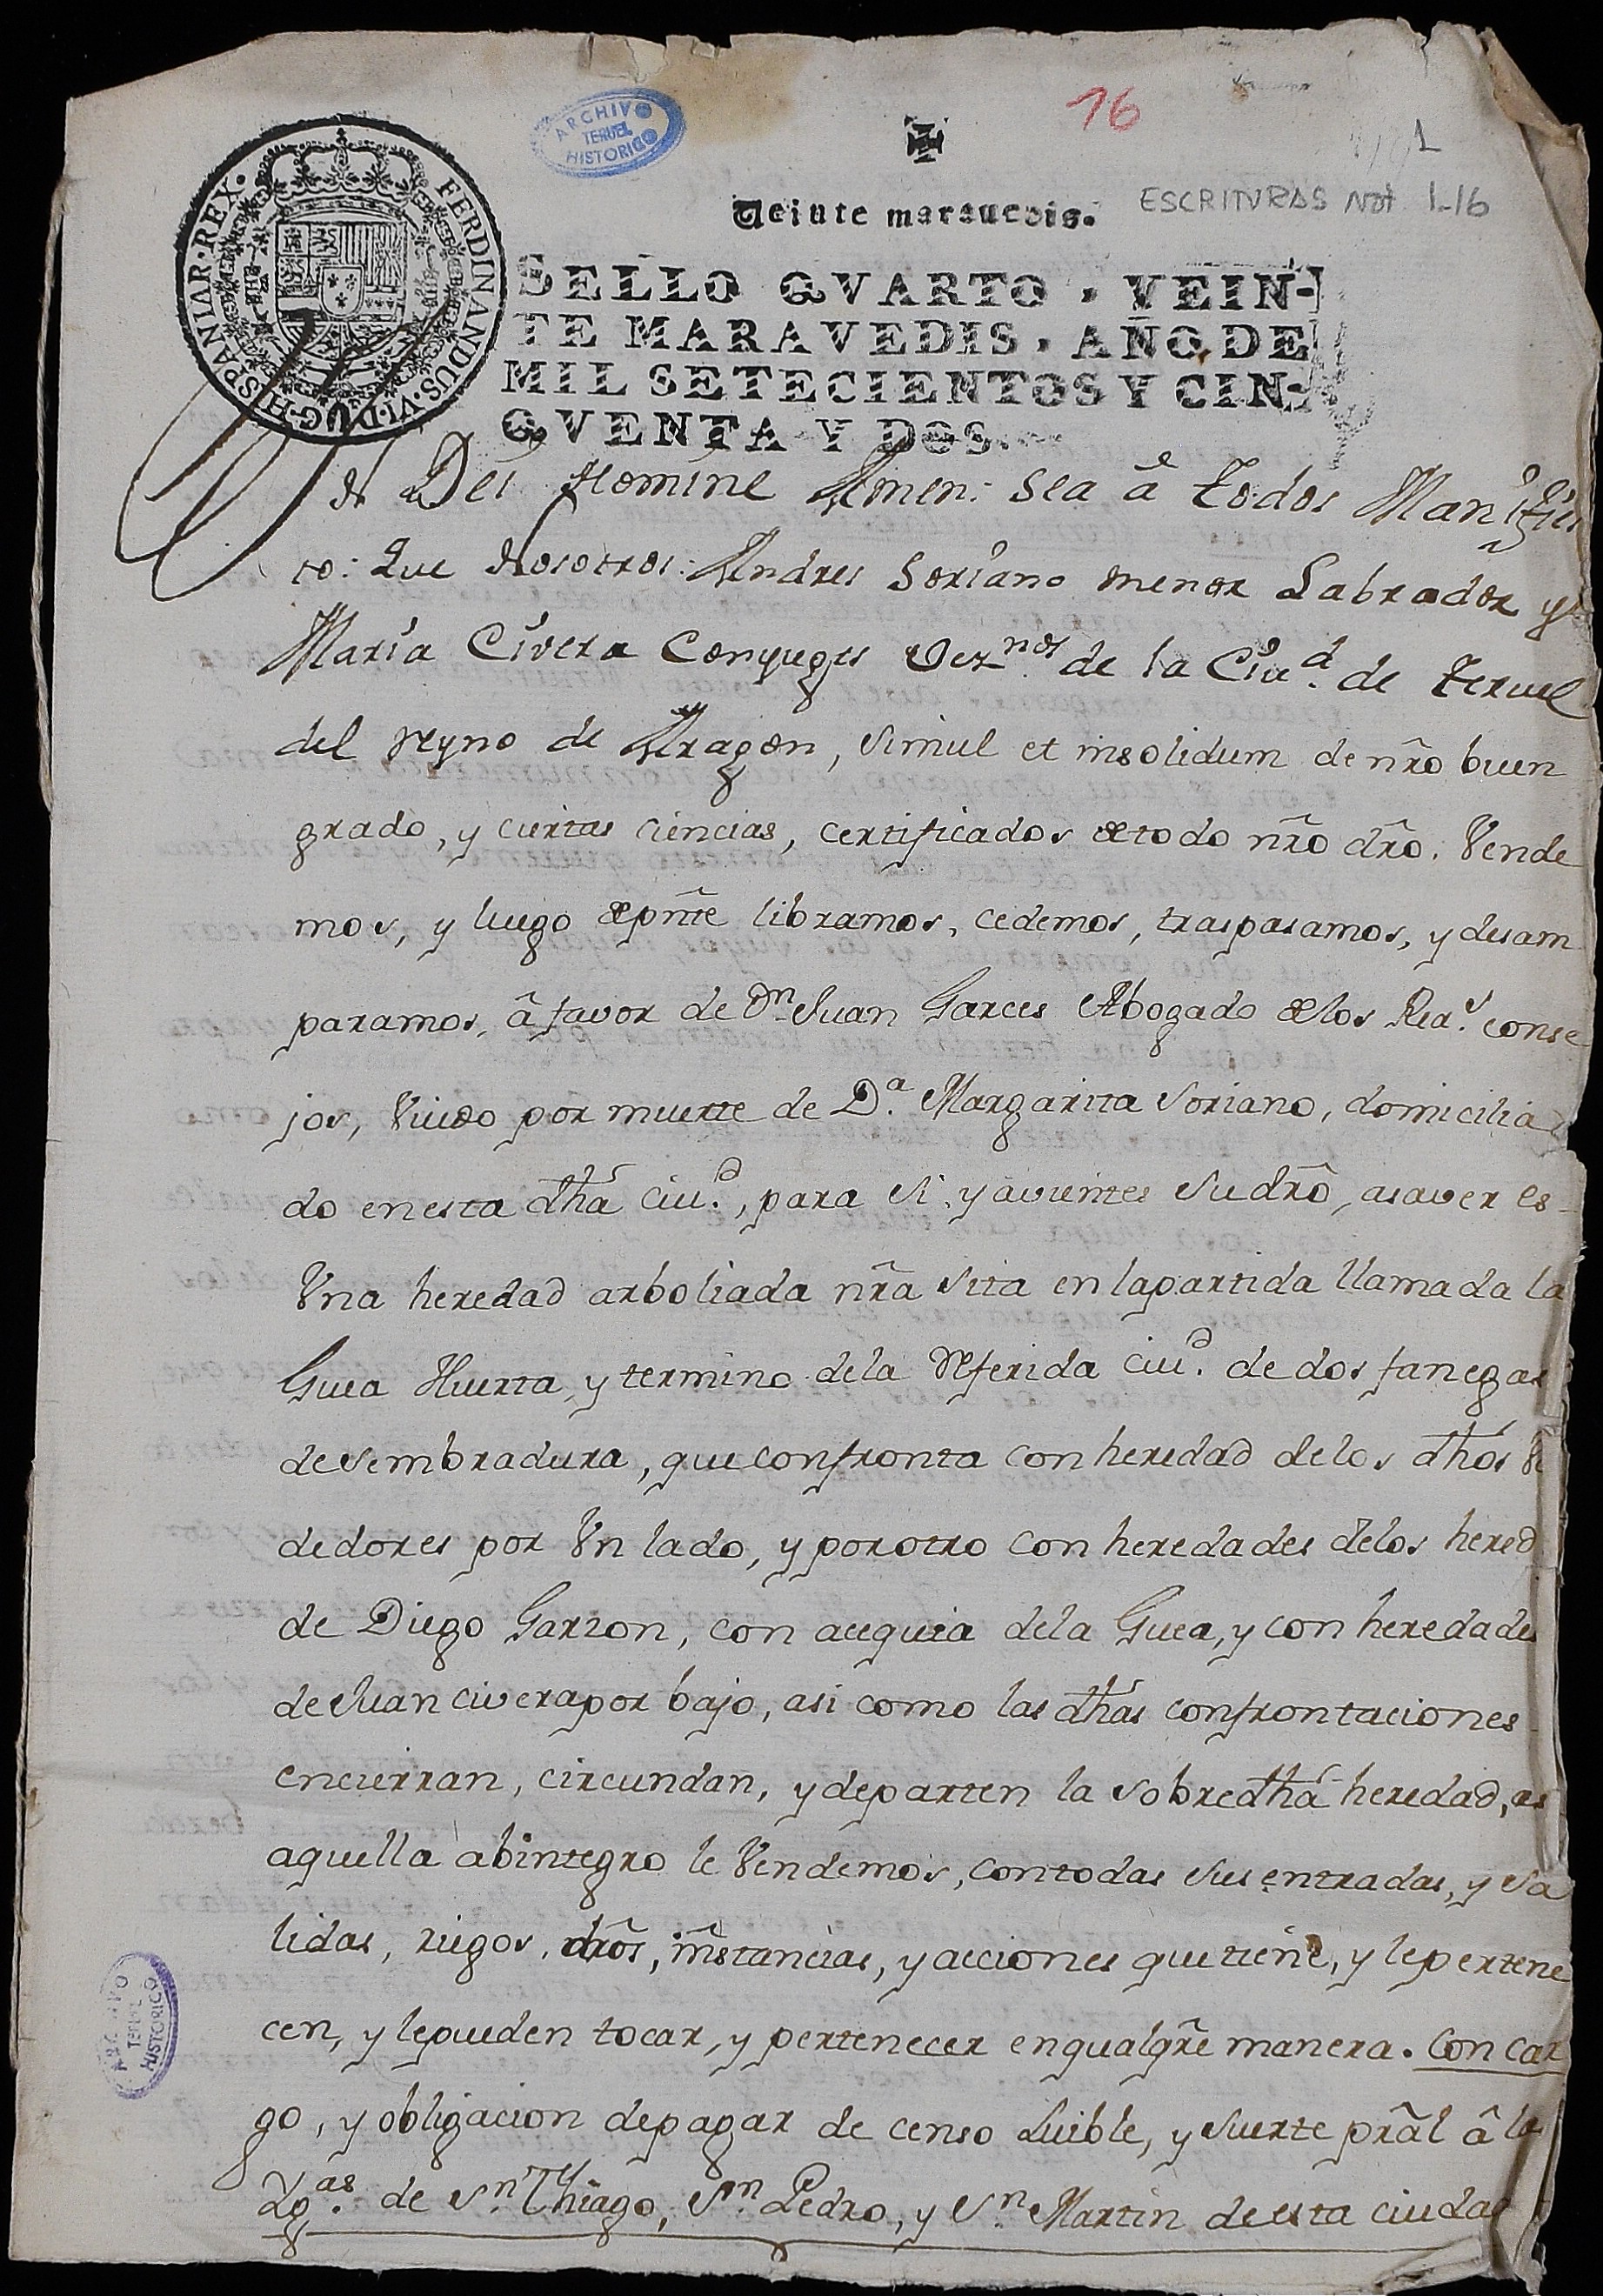 ARCHIVO
TERUEL
HISTORICO
16
1
ESCRITURAS Not 1-16
FERDINANDUS·VI·D·G·HISPANIAR·REX·
Veinte maravedis.
SELLO QVARTO, VEIN-
TE MARAVEDIS, AÑO DE
MIL SETECIENTOS Y CIN-
QVENTA Y DOS.
In Dei Nomine Amen: Sea â todos Manifies
to: Que Nosotros: Andres Soriano menor Labrador y
Maria Civera Conyuges Vez.nos de la Ciu.d de Teruel
del reyno de Aragon, simul et insolidum de nr̃o buen
grado, y ciertas ciencias, certificados de todo nr̃o dr̃o. Vende
mos, y luego de pñte libramos, cedemos, traspasamos, y desam
paramos, â favor de D.n Juan Garces Abogado de los Rea.s conse
jos, Viudo por muerte de D.a Margarita Soriano, domicilia
do en esta dh̃a ciu.d, para si, y avientes su dr̃o, asaver es-
Vna heredad arboliada nr̃a sita en la partida llamada la
Guea Huerta, y termino dela referida ciu.d de dos fanegas
de sembradura, que confronta con heredad de los dh̃os Ve
dedores por Vn lado, y por otro con heredades delos hered
de Diego Garzon, con acequia dela Guea, y con heredades
de Juan civera por bajo, asi como las dh̃as confrontaciones
encierran, circundan, y departen la sobredh̃a heredad, as
aquella abintegro le Vendemos, con todas sus entradas, y sa
lidas, riegos, dr̃os, iñstancias, y acciones que tiene, y le pertene
cen, y le pueden tocar, y pertenecer en qualqr̃e manera. Con car
go, y obligacion de pagar de censo Luible, y suerte pr̃al â la
Ygas. de S.n Thiago, S.n Pedro, y S.n Martin de esta ciudad
ARCHIVO
TERUEL
HISTORICO